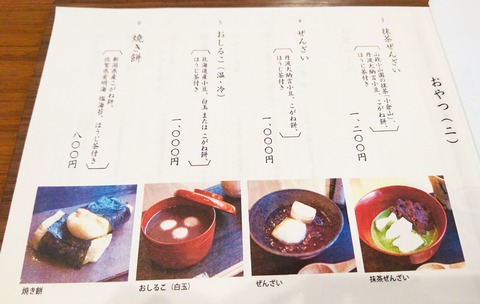 おやつ（二）
抹茶ぜんざい
山政小山園の抹茶「小倉山」、
丹波大納言小豆、こがね餅、
ほうじ茶付き
一、二〇〇円
ぜんざい
丹波大納言小豆、こがね餅、
ほうじ茶付き
一、〇〇〇円
おしるこ（温・冷）
北海道産小豆、白玉またはこがね餅、
ほうじ茶付き
一、〇〇〇円
焼き餅
新潟県産こがね餅、
佐賀県有明海 塩海苔、ほうじ茶付き
八〇〇円
焼き餅
おしるこ（白玉）
ぜんざい
抹茶ぜんざい